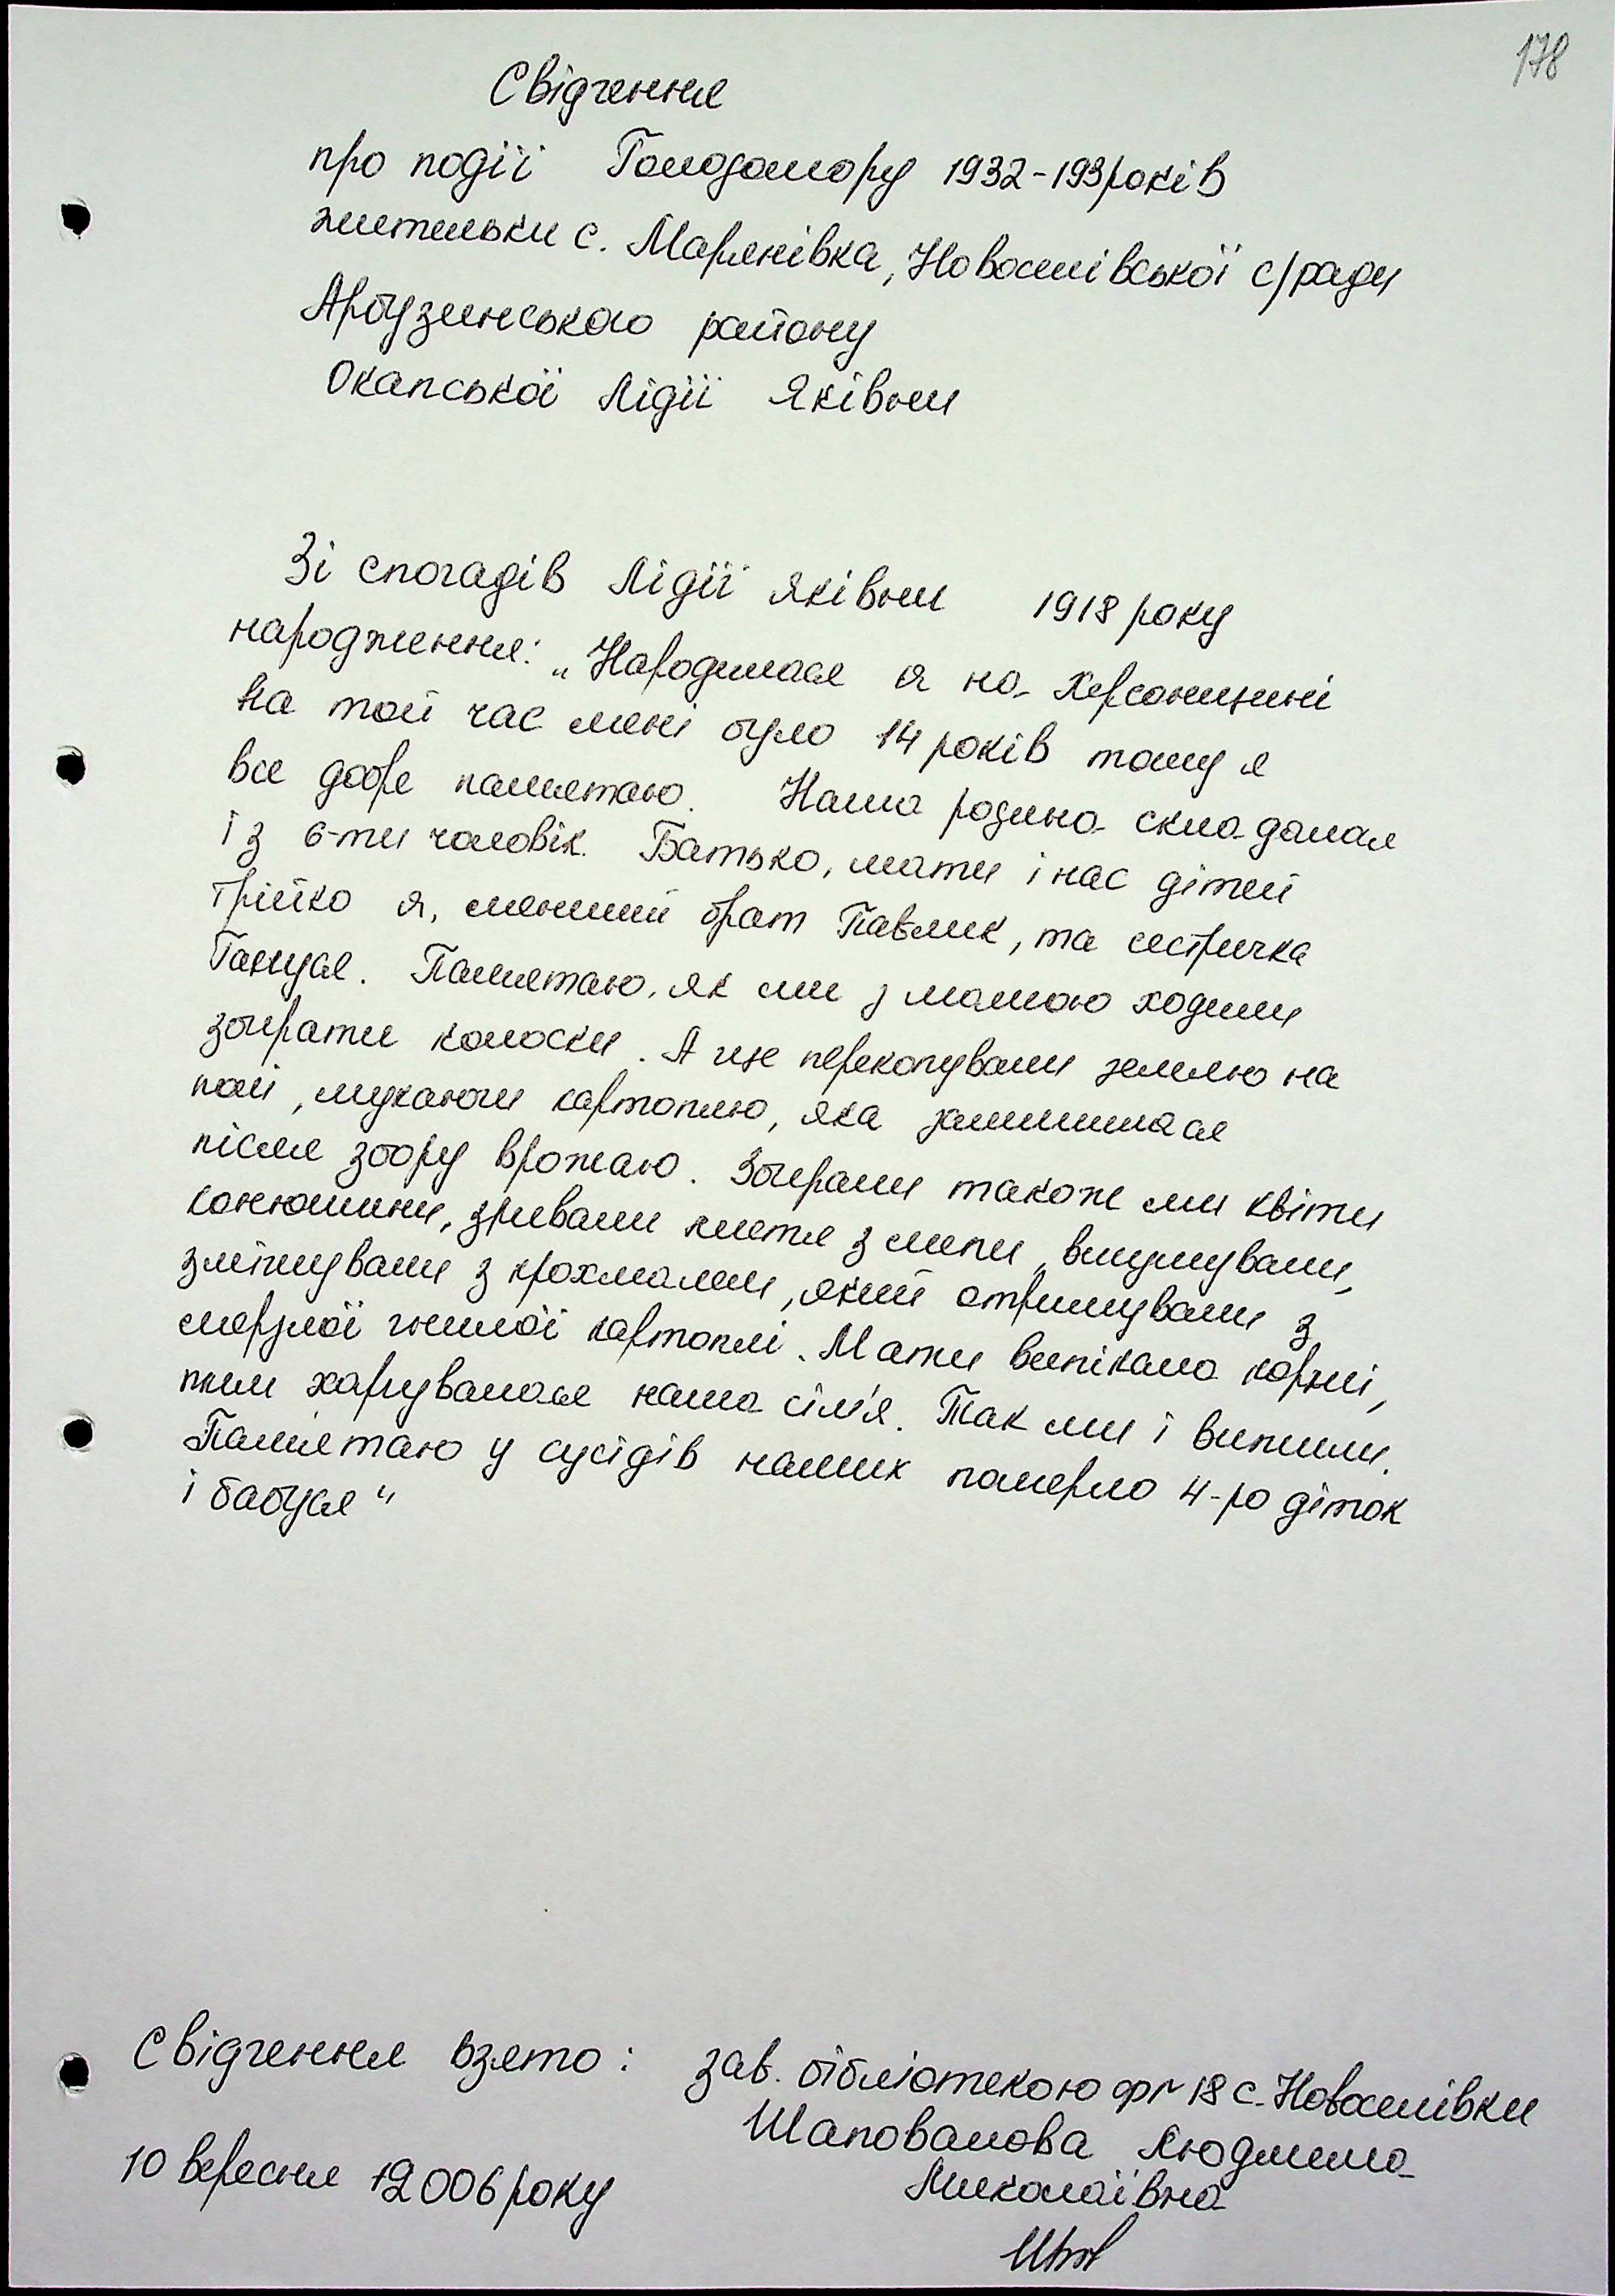 178
Свідчення
про події Голодомору 1932-193років
жительки с. Мар'янівка, Новоселівської с/ради
Арбузинського району
Окапської Лідії Яківни
Зі спогадів Лідії Яківни 1918 року
народження: „Народилася я на Херсонщині
На той час мені було 14 років тому я
все добре памятаю. Наша родина складалася
із 6-ти чоловік. Батько, мати і нас дітей
трійко я, менший брат Павлик, та сестричка
Гануся. Памятаю, як ми з мамою ходили
збирати колоски. А ще перекопували землю на
полі, шукаючи картоплю, яка залишилася
після збору врожаю. Збирали також ми квіти
конюшини, зривали листя з липи, висушували,
змішували з крохмалем, який отримували з
мерзлої гнилої картоплі. Мати випікала коржі,
ними харчувалася наша сім'я. Так ми і вижили.
Пам'ятаю у сусідів наших померло 4-ро діток
і бабуся"
Свідчення взято: зав. бібліотекою ф№18 с. Новоселівки
Шаповалова Людмила
Миколаївна
10 вересня 2006 року